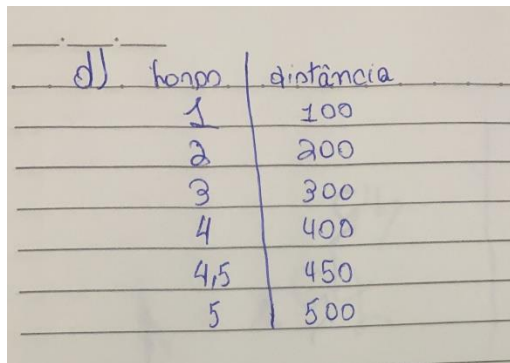 d) horas distância
1 100
2 200
3 300
4 400
4,5 450
5 500